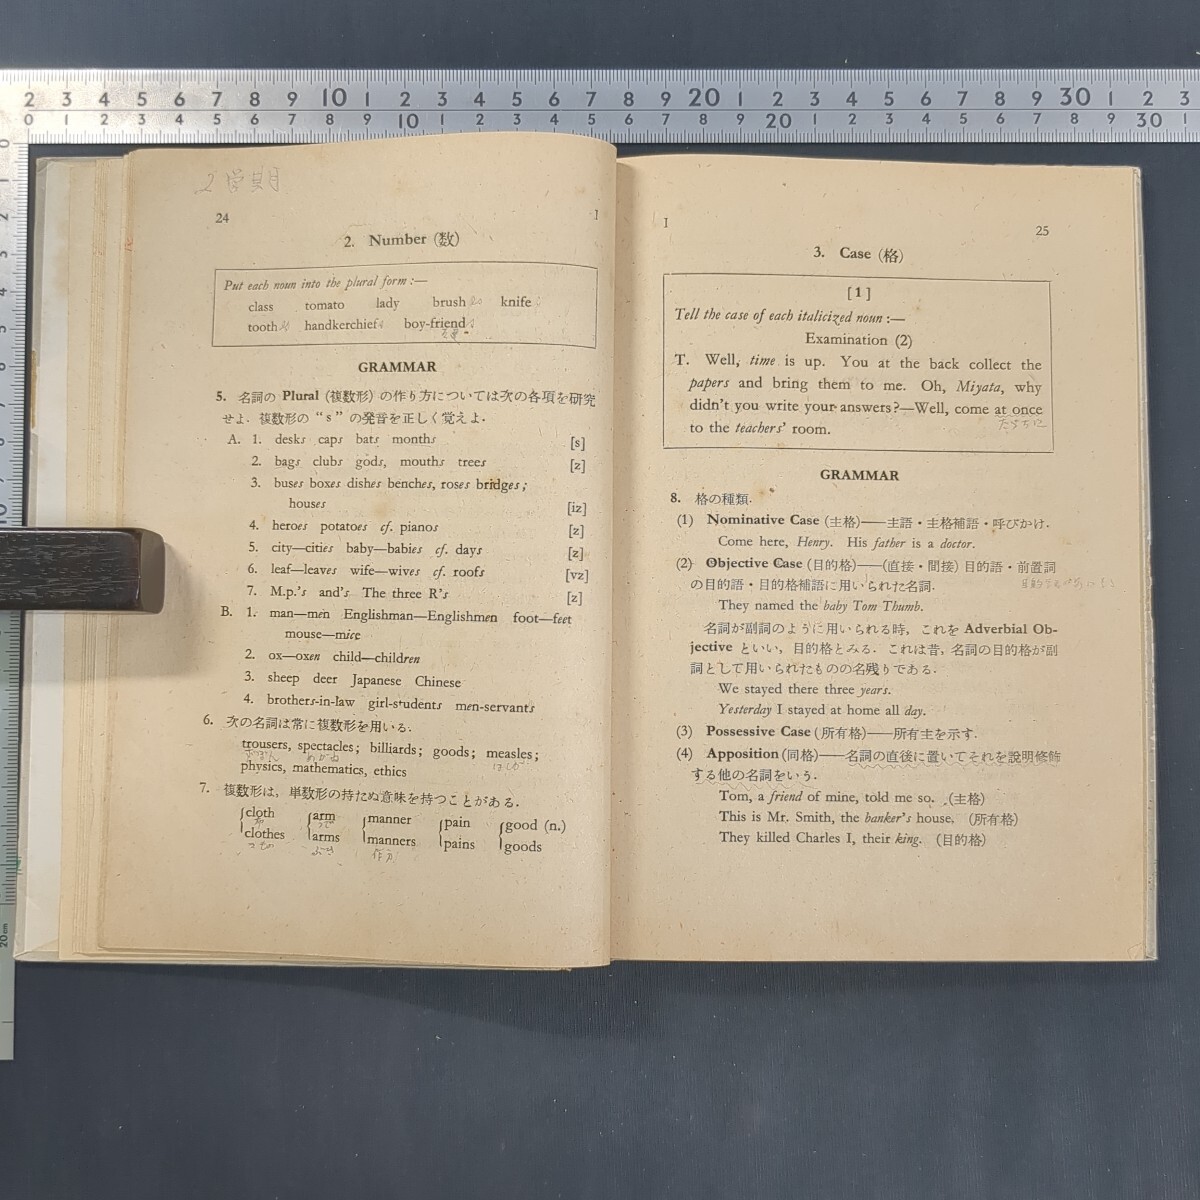 2 3 4 5 6 7 8 9 10 1 2 3 4 5 6 7 8 9 20 1 2 3 4 5 6 7 8 9 30 1 2 3
0 1 2 3 4 5 6 7 8 9 10 1 2 3 4 5 6 7 8 9 20 1 2 3 4 5 6 7 8 9 30 1
2学期
24
I
2. Number (数)
Put each noun into the plural form :—
class tomato lady brush es knife s
tooth handkerchief s boy-friend s
GRAMMAR
5. 名詞の Plural (複数形) の作り方については次の各項を研究
せよ. 複数形の “s” の発音を正しく覚えよ.
A. 1. desks caps bats months [s]
2. bags clubs gods, mouths trees [z]
3. buses boxes dishes benches, roses bridges;
houses [iz]
4. heroes potatoes cf. pianos [z]
5. city—cities baby—babies cf. days [z]
6. leaf—leaves wife—wives cf. roofs [vz]
7. M.p.'s and's The three R's [z]
B. 1. man—men Englishman—Englishmen foot—feet
mouse—mice
2. ox—oxen child—children
3. sheep deer Japanese Chinese
4. brothers-in-law girl-students men-servants
6. 次の名詞は常に複数形を用いる.
trousers, spectacles; billiards; goods; measles;
ずぼん めがね はしか
physics, mathematics, ethics
7. 複数形は, 単数形の持たぬ意味を持つことがある.
cloth arm manner pain good (n.)
布 うで
clothes arms manners pains goods
きもの ぶき 作方
I
25
3. Case (格)
[1]
Tell the case of each italicized noun :—
Examination (2)
T. Well, time is up. You at the back collect the
papers and bring them to me. Oh, Miyata, why
didn't you write your answers?—Well, come at once
ただちに
to the teachers' room.
GRAMMAR
8. 格の種類.
(1) Nominative Case (主格)——主語・主格補語・呼びかけ.
Come here, Henry. His father is a doctor.
(2) Objective Case (目的格)——(直接・間接) 目的語・前置詞
の目的語・目的格補語に用いられた名詞.
They named the baby Tom Thumb.
名詞が副詞のように用いられる時, これを Adverbial Ob-
jective といい, 目的格とみる. これは昔, 名詞の目的格が副
詞として用いられたものの名残りである.
We stayed there three years.
Yesterday I stayed at home all day.
(3) Possessive Case (所有格)——所有主を示す.
(4) Apposition (同格)——名詞の直後に置いてそれを説明修飾
する他の名詞をいう.
Tom, a friend of mine, told me so. (主格)
This is Mr. Smith, the banker's house. (所有格)
They killed Charles I, their king. (目的格)
20cm